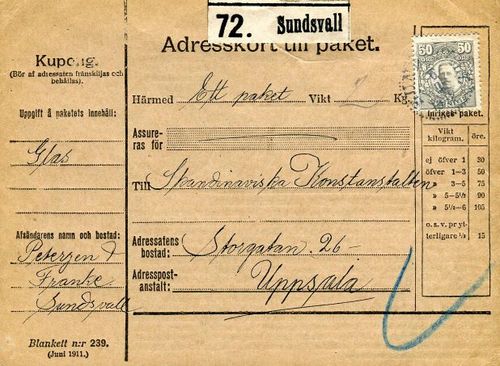 72. Sundsvall
Kupong.
(Bör af adressaten frånskiljas och
behållas).
Uppgift å paketets innehåll:
Glas
Afsändarens namn och bostad:
Petersen &
Franke
Sundsvall
Blankett n:r 239.
(Juni 1911.)
Adresskort till paket.
Härmed Ett paket Vikt Kg.
Assure-
ras för
Till Skandinaviska Konstanstalten
Adressatens
bostad: Storgatan 26-
Adresspost-
anstalt: Uppsala
50 50
Inrikes paket.
Vikt
kilogram. öre.
ej öfver 1 30
öfver 1-3 50
» 3-5 75
» 5-5½ 90
» 5½-6 105
o. s. v. pr yt-
terligare ½ 15